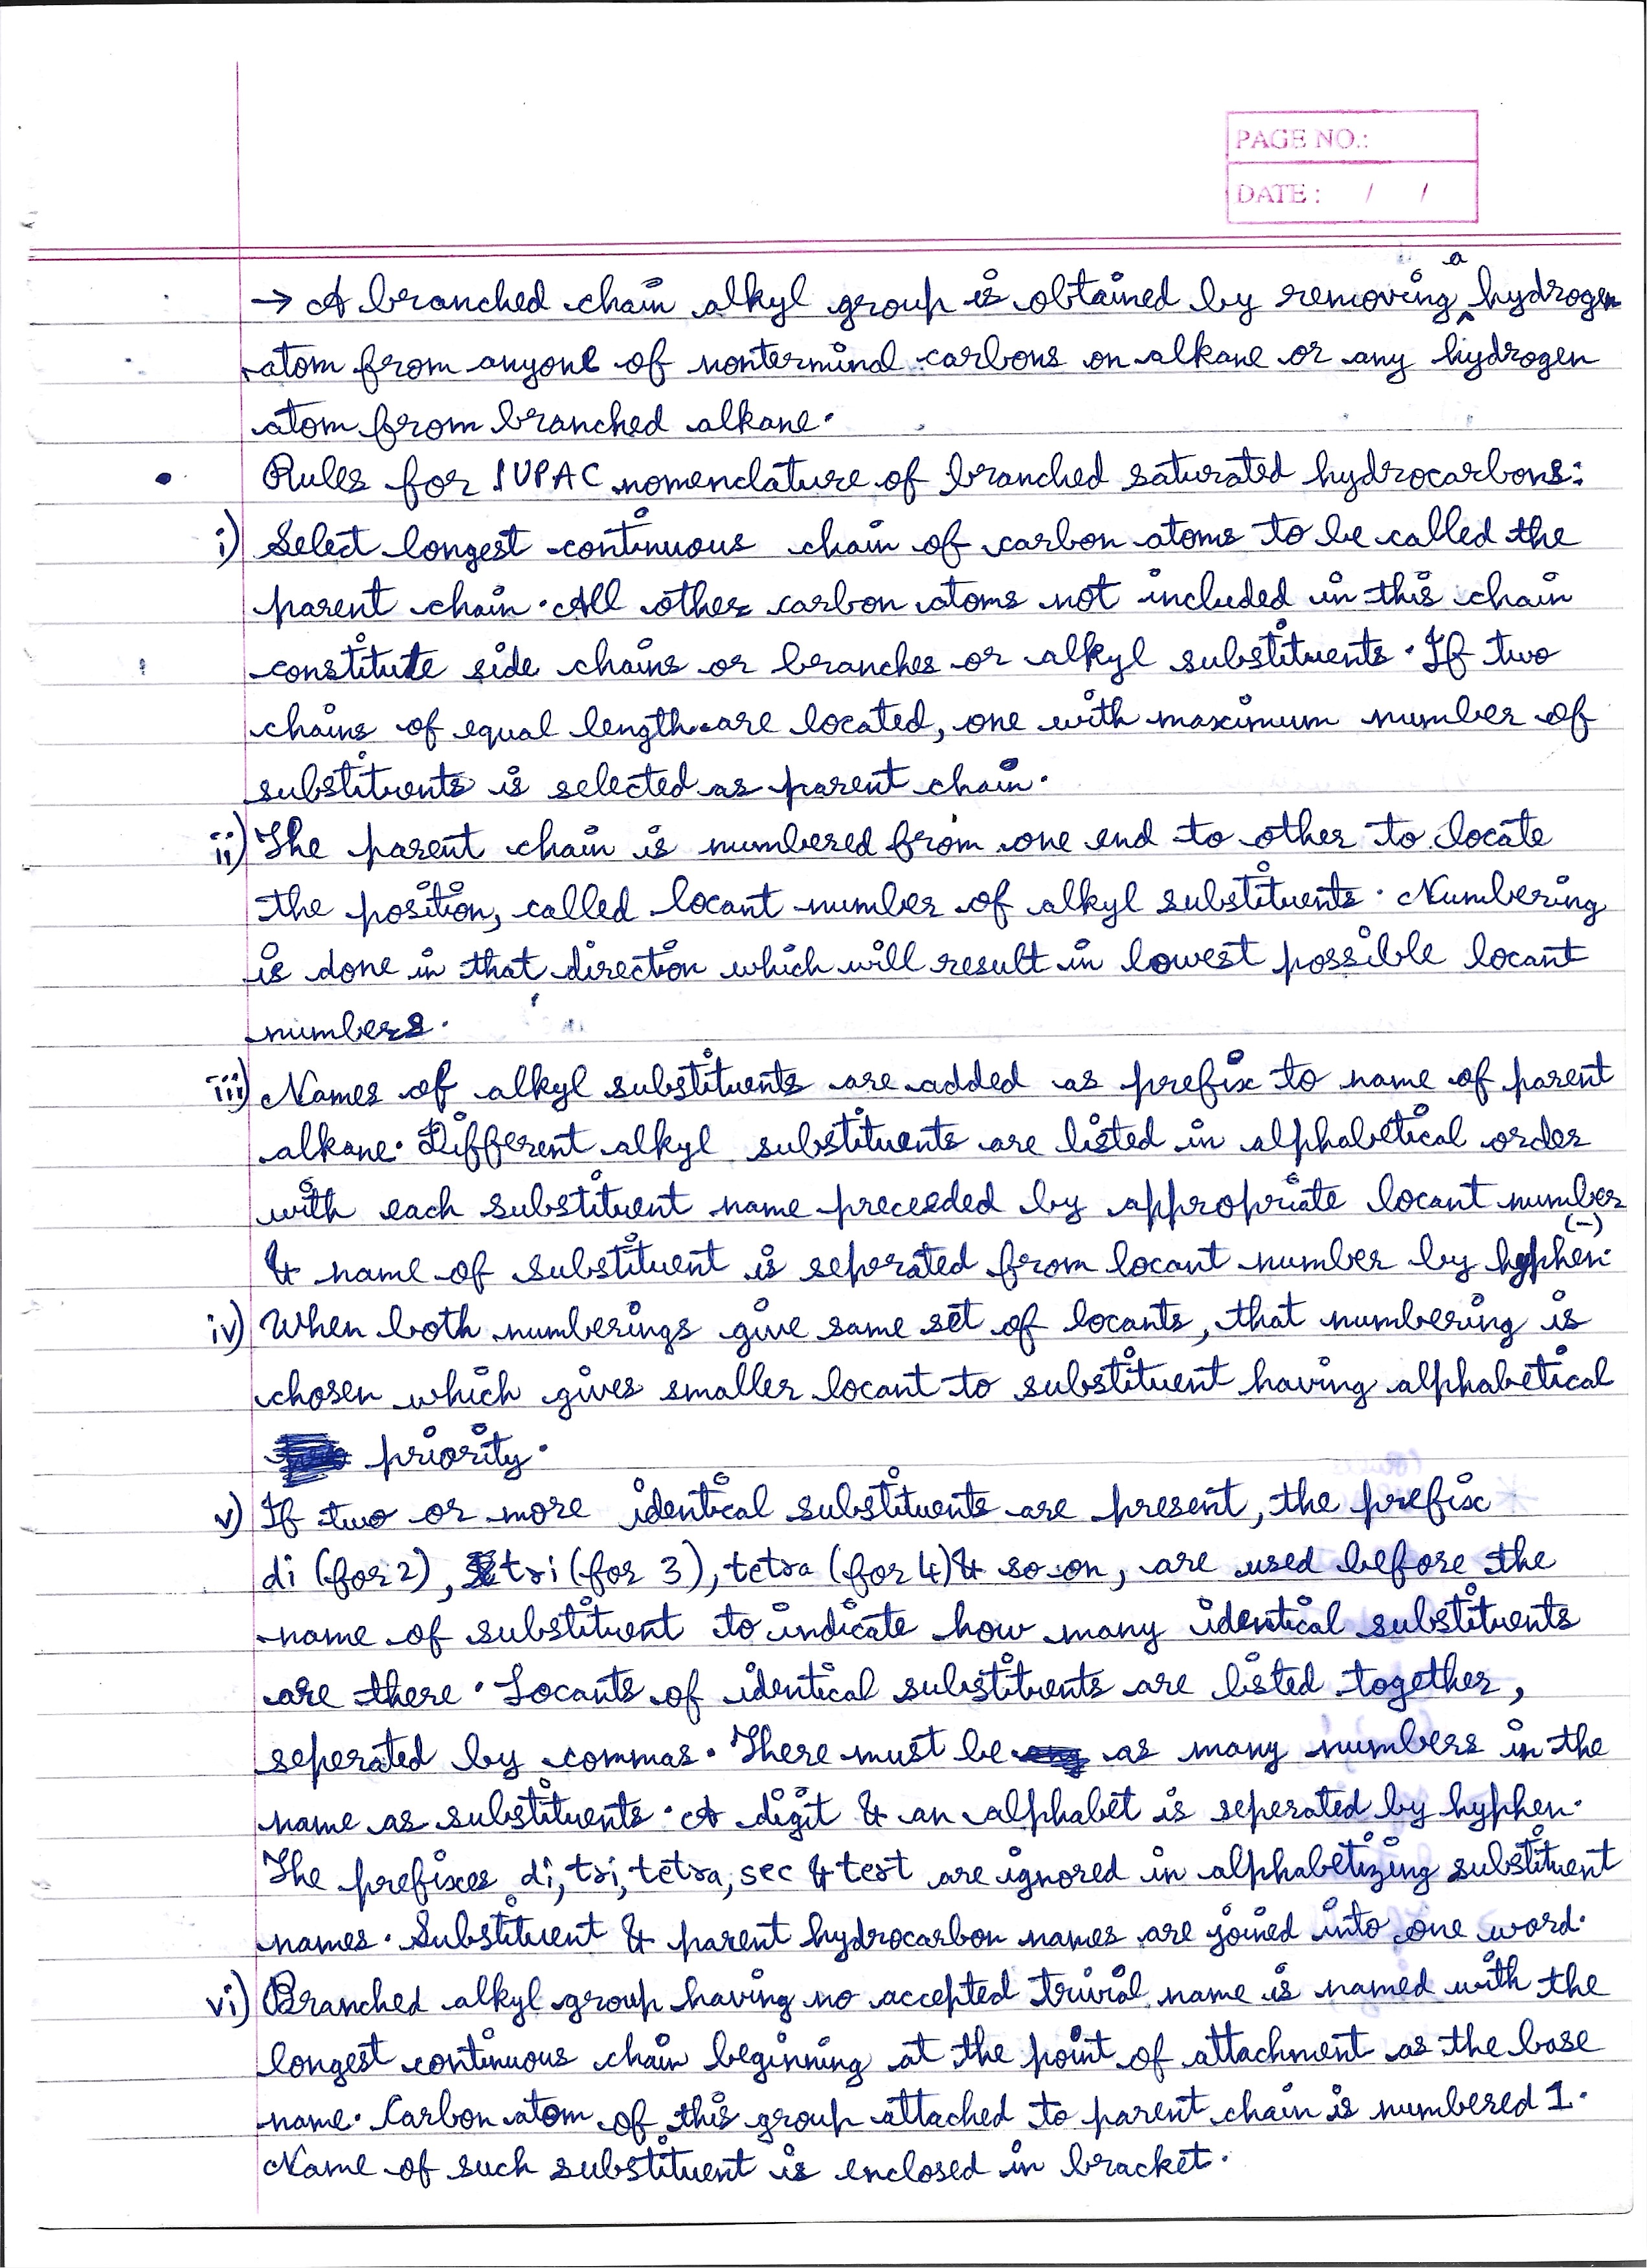 PAGE NO.:
DATE : / /
→ A branched chain alkyl group is obtained by removing a hydrogen
atom from anyone of nonterminal carbons on alkane or any hydrogen
atom from branched alkane.
• Rules for IUPAC nomenclature of branched saturated hydrocarbons:
i) Select longest continuous chain of carbon atoms to be called the
parent chain. All other carbon atoms not included in this chain
constitute side chains or branches or alkyl substituents. If two
chains of equal length are located, one with maximum number of
substituents is selected as parent chain.
ii) The parent chain is numbered from one end to other to locate
the position, called locant number of alkyl substituents. Numbering
is done in that direction which will result in lowest possible locant
numbers.
iii) Names of alkyl substituents are added as prefix to name of parent
alkane. Different alkyl substituents are listed in alphabetical order
with each substituent name preceeded by appropriate locant number
& name of substituent is seperated from locant number by hyphen (-).
iv) When both numberings give same set of locants, that numbering is
chosen which gives smaller locant to substituent having alphabetical
priority.
v) If two or more identical substituents are present, the prefix
di (for 2), tri (for 3), tetra (for 4) & so on, are used before the
name of substituent to indicate how many identical substituents
are there. Locants of identical substituents are listed together,
seperated by commas. There must be as many numbers in the
name as substituents. A digit & an alphabet is seperated by hyphen.
The prefixes di, tri, tetra, sec & tert are ignored in alphabetizing substituent
names. Substituent & parent hydrocarbon names are joined into one word.
vi) Branched alkyl group having no accepted trivial name is named with the
longest continuous chain beginning at the point of attachment as the base
name. Carbon atom of this group attached to parent chain is numbered 1.
Name of such substituent is enclosed in bracket.